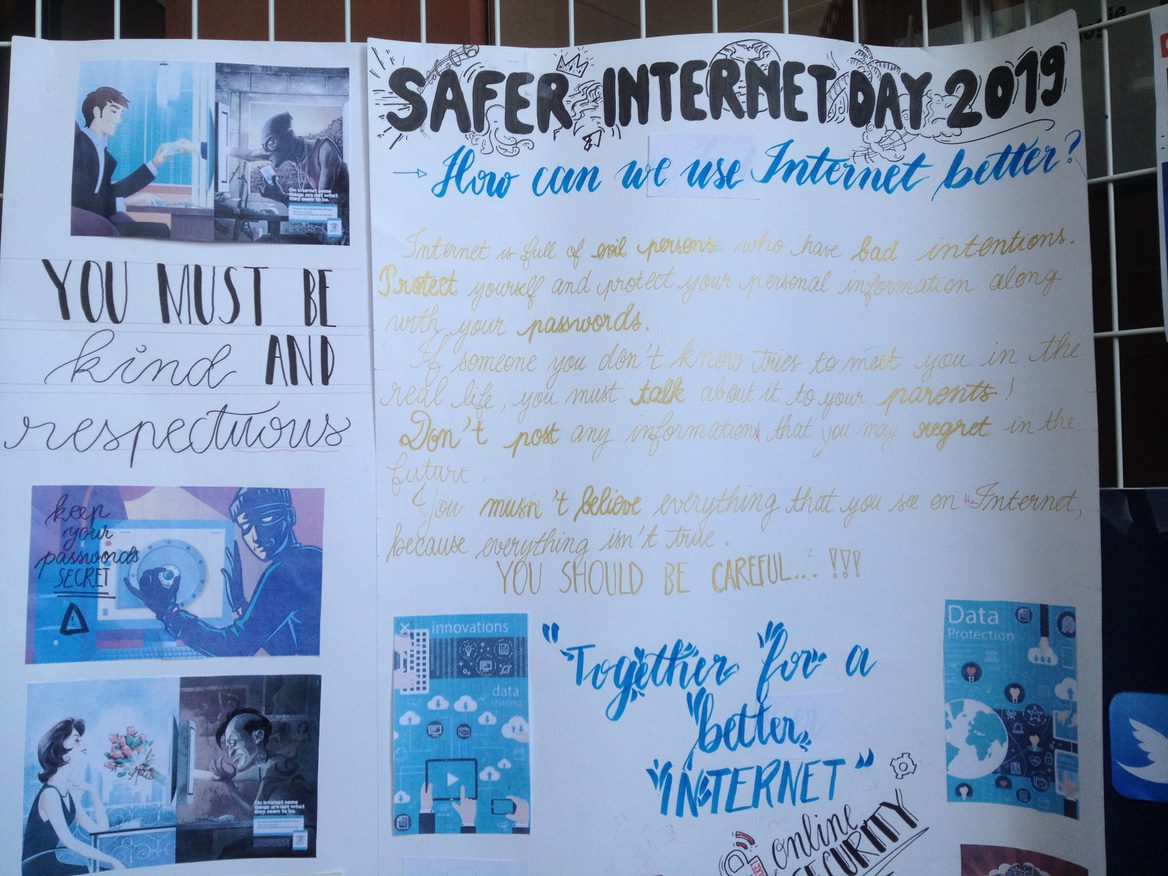 SAFER INTERNET DAY 2019
→ How can we use Internet better?
Internet is full of evil persons who have bad intentions.
Protect yourself and protect your personal information along
with your passwords.
If someone you don't know tries to meet you in the
real life, you must talk about it to your parents !
Don't post any informations that you may regret in the
future.
You musn't believe everything that you see on the Internet,
because everything isn't true.
YOU SHOULD BE CAREFUL... !!!
"Together for a
better
INTERNET"
online
SECURITY
innovations
data
sharing
Data
Protection
On Internet some
things are not what
they seem to be.
YOU MUST BE
kind AND
respectuous
keep
your
passwords
SECRET
On Internet some
things are not what
they seem to be.